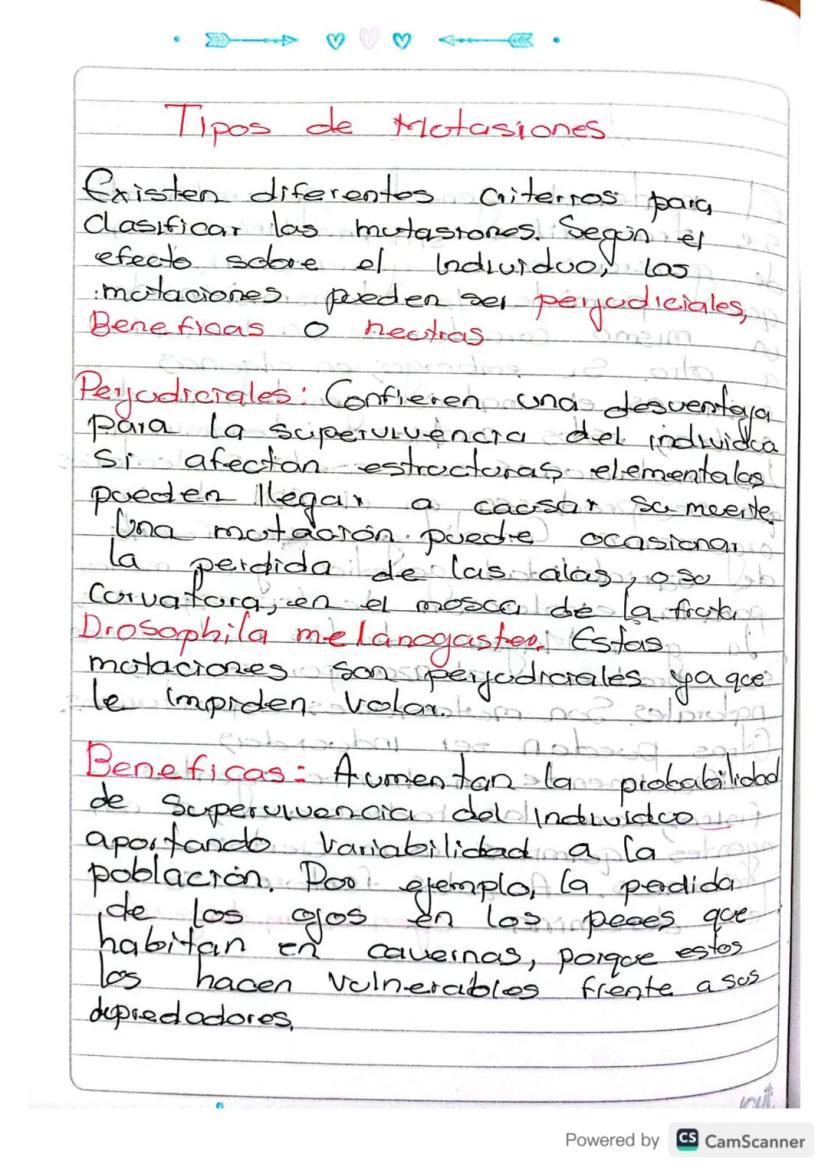 Tipos de Mutasiones
Existen diferentes criterios para
clasificar las mutasiones. Según el
efecto sobre el individuo, las
mutaciones pueden ser perjudiciales,
Beneficas o neutras
Perjudiciales: Confieren una desventaja
para la supervivencia del individuo
Si afectan estructuras elementales
pueden llegar a causar su muerte
Una mutación puede ocasionar
la perdida de las alas, o su
curvatura, en el mosca de la fruta
Drosophila melanogaster. Estas
mutaciones son perjudiciales ya que
le impiden volar.
Beneficas: Aumentan la probabilidad
de supervivencia del individuo
aportando variabilidad a la
población. Por ejemplo, la perdida
de los ojos en los peces que
habitan en cavernas, porque estos
los hacen vulnerables frente a sus
depredadores,
Powered by CS CamScanner